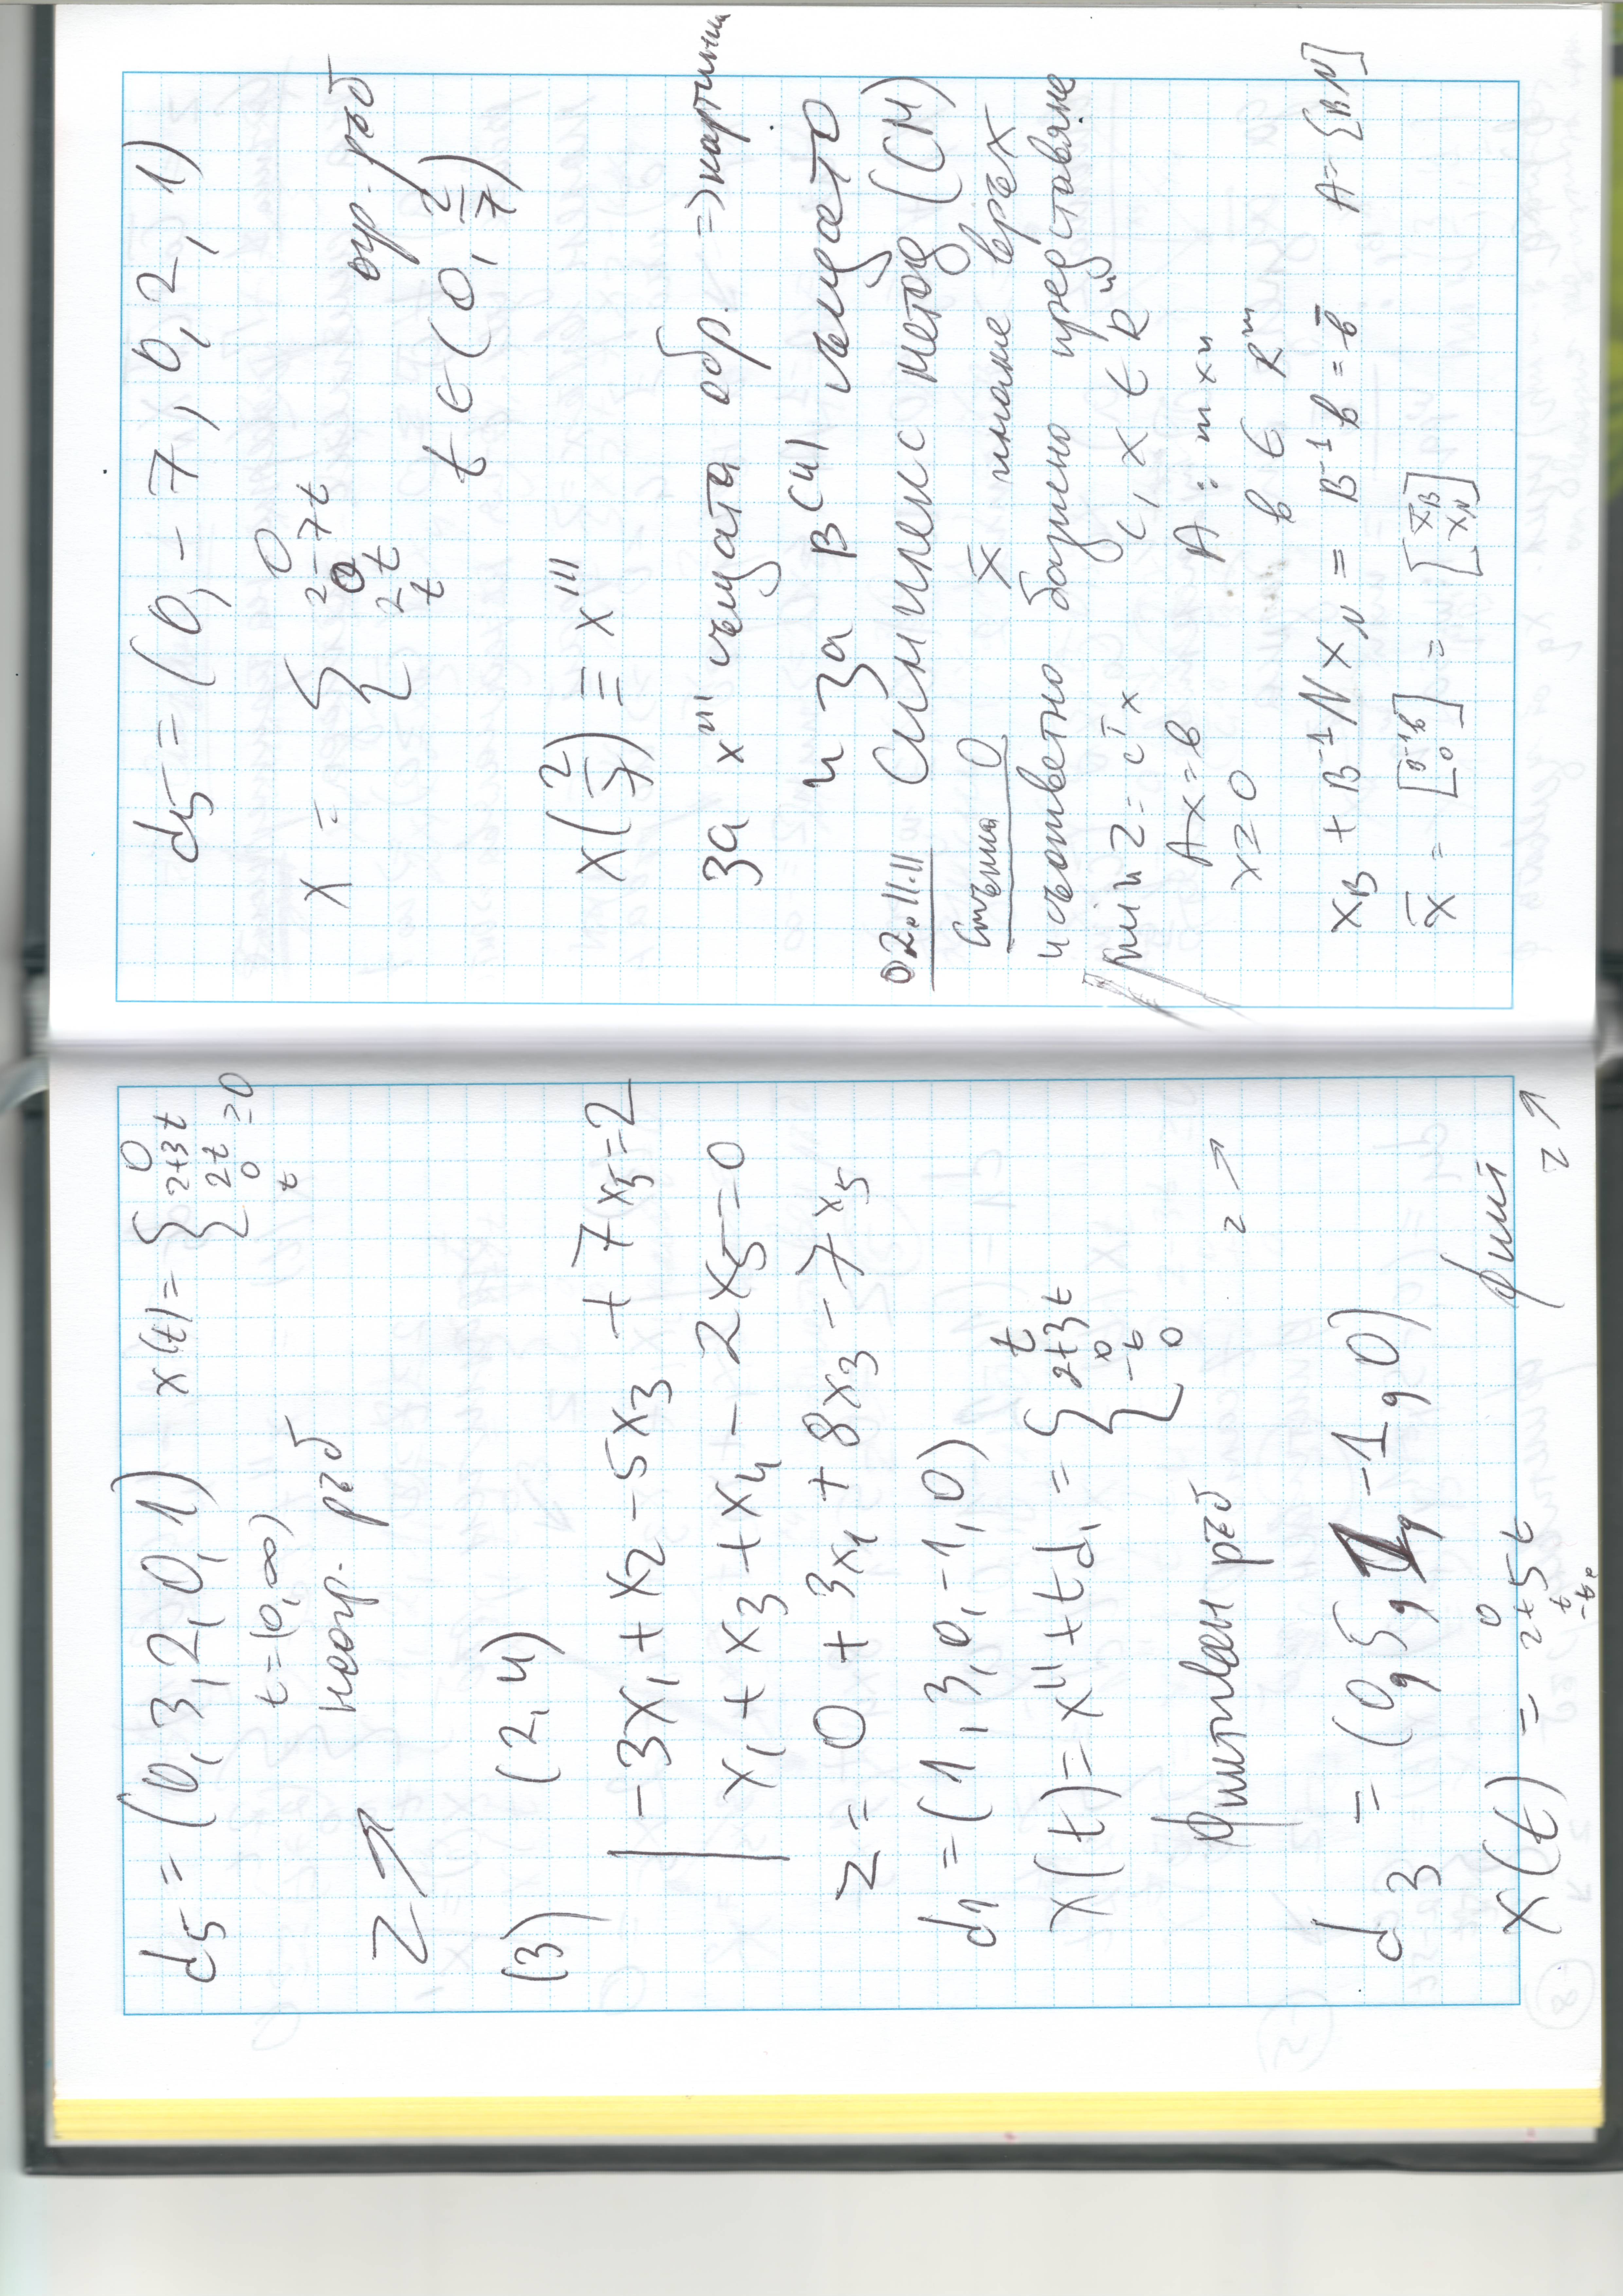 d5 = (0, 3, 2, 0, 1) x(t) = { 0
2+3t
2t
0
t ≥0
t = (0, ∞)
неогр. ръб
z ↗
(3) (2, 4)
| -3x1 + x2 - 5x3 + 7x5 = 2
x1 + x3 + x4 - 2x5 = 0
z = 0 + 3x1 + 8x3 - 7x5
d1 = (1, 3, 0, -1, 0)
x(t) = x" + td1 = { t
2+3t
0
-t
0
фиктивен ръб z ↗
d3 = (0, 5, 1, -1, 0)
x(t) = 0
2+5t
t
-t
0
фикт z ↗
d5 = (0, -7, 0, 2, 1)
x = { 0
2-7t
0
2t
t
огр. ръб
t ∈ (0, 2/7)
x(2/7) = x'''
за x''' същата обр. => картина
и за B(4) същото
02.11.11 Симплекс метод (СМ)
Стъпка 0 x̄ имаме връх
и съответно базисно представяне
min z = cᵀx c, x ∈ Rⁿ
Ax = b A : m x n
x ≥ 0 b ∈ Rᵐ
xB + B⁻¹N xN = B⁻¹b = b̄ A = [B N]
x̄ = [B⁻¹b
0] = [x̄B
xN]